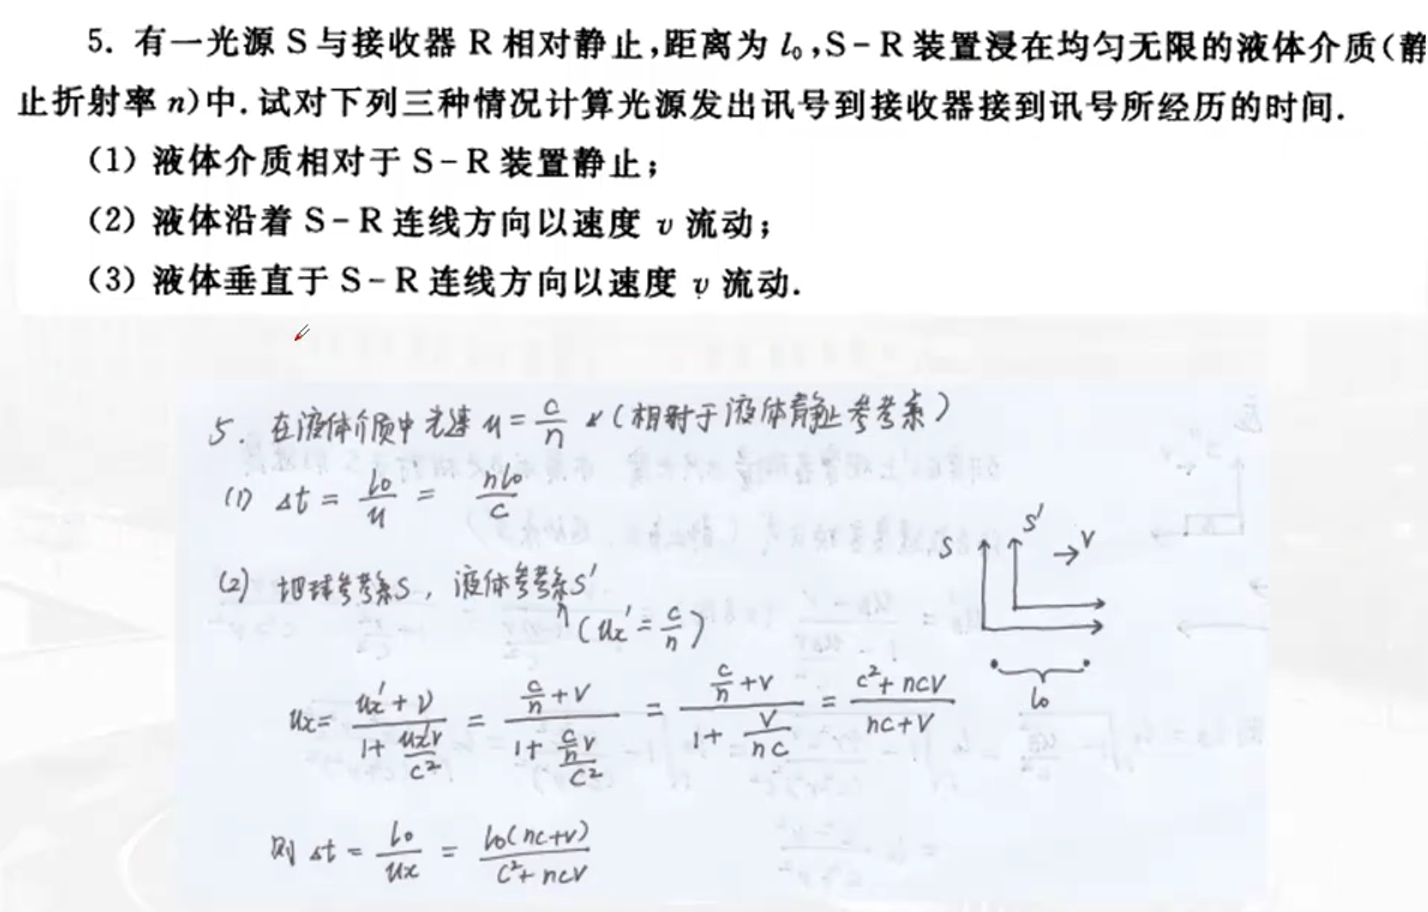 5. 有一光源 S 与接收器 R 相对静止,距离为 l₀,S-R 装置浸在均匀无限的液体介质(静
止折射率 n)中.试对下列三种情况计算光源发出讯号到接收器接到讯号所经历的时间.
(1) 液体介质相对于 S-R 装置静止;
(2) 液体沿着 S-R 连线方向以速度 v 流动;
(3) 液体垂直于 S-R 连线方向以速度 v 流动.
5. 在液体介质中光速 u = c/n (相对于液体静止参考系)
(1) Δt = l₀/u = nl₀/c
(2) 地球参考系S, 液体参考系S'
(ux' = c/n)
ux = (ux' + v)/(1 + ux'v/c²) = (c/n + v)/(1 + (c/n)v/c²) = (c/n + v)/(1 + v/nc) = (c² + ncv)/(nc + v)
则 Δt = l₀/ux = l₀(nc+v)/(c² + ncv)
S S' → v
l₀